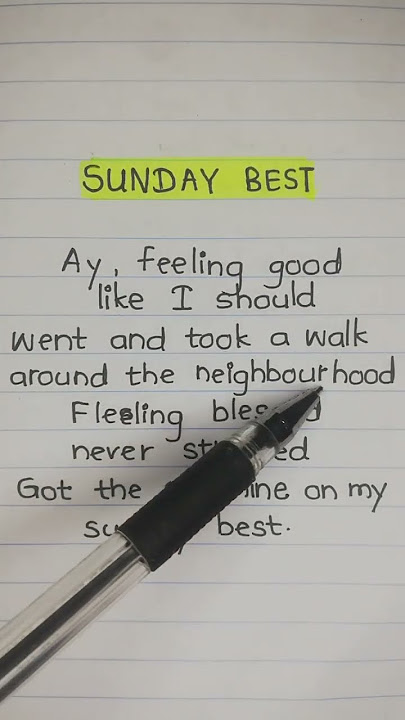 SUNDAY BEST
Ay, feeling good
like I should
went and took a walk
around the neighbourhood
Fleeling blessed
never
Got the on my
best.